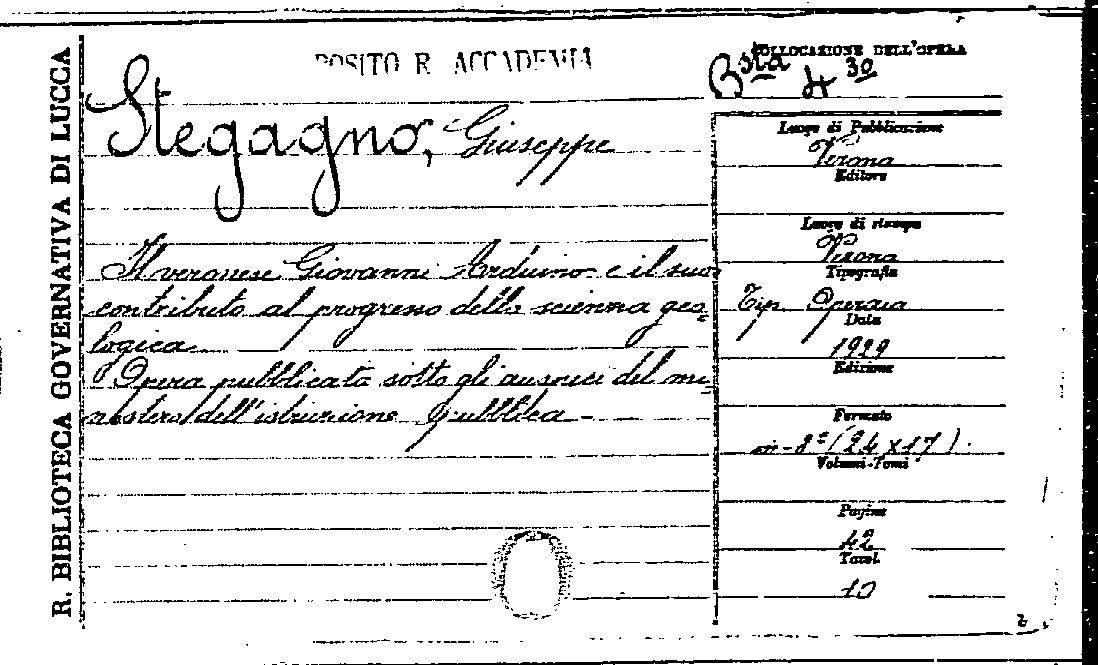 R. BIBLIOTECA GOVERNATIVA DI LUCCA
POSITO R. ACCADEMIA
COLLOCAZIONE DELL'OPERA
Bsta 4 30
Stegagno, Giuseppe
Il veronese Giovanni Arduino e il suo
contributo al progresso della scienza geo=
logica.
Opera pubblicata sotto gli auspici del mi=
nistero dell'istruzione pubblica -
Luogo di Pubblicazione
Verona
Editore
Luogo di stampa
Verona
Tipografia
Tip. Operaia
Data
1929
Edizione
Formato
in-8° (24 x 17).
Volumi-Tomi
Pagine
42
Tavol.
10